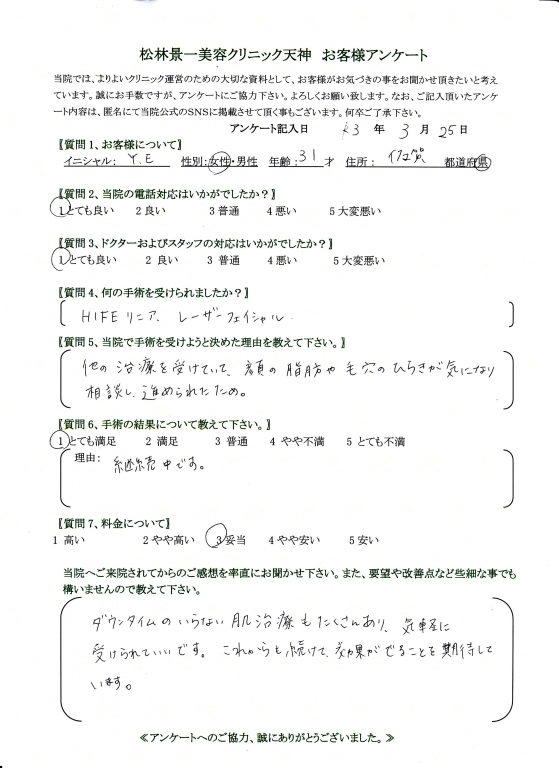 松林景一美容クリニック天神 お客様アンケート
当院では、よりよいクリニック運営のための大切な資料として、お客様がお気づきの事をお聞かせ頂きたいと考え
ています。誠にお手数ですが、アンケートにご協力下さい。よろしくお願い致します。なお、ご記入頂いたアンケ
ート内容は、匿名にて当院公式のSNSに掲載させて頂く事もございます。何卒ご了承下さい。
アンケート記入日 R3 年 3 月 25 日
〖質問1、お客様について〗
イニシャル: Y.E 性別:女性・男性 年齢:31才 住所: 佐賀 都道府県
〖質問2、当院の電話対応はいかがでしたか?〗
1とても良い 2良い 3普通 4悪い 5大変悪い
〖質問3、ドクターおよびスタッフの対応はいかがでしたか?〗
1とても良い 2 良い 3 普通 4悪い 5大変悪い
〖質問4、何の手術を受けられましたか?〗
HIFEリニア、レーザーフェイシャル.
〖質問5、当院で手術を受けようと決めた理由を教えて下さい。〗
他の治療を受けていて、顔の脂肪や毛穴のひらきが気になり
相談し、進められたため。
〖質問6、手術の結果について教えて下さい。〗
1とても満足 2 満足 3 普通 4 やや不満 5 とても不満
理由: 継続中です。
〖質問7、料金について〗
1 高い 2やや高い 3妥当 4やや安い 5安い
当院へご来院されてからのご感想を率直にお聞かせ下さい。また、要望や改善点など些細な事でも
構いませんので教えて下さい。
ダウンタイムのいらない肌治療もたくさんあり、気軽に
受けられていいです。これからも続けて、効果がでることを期待して
います。
≪アンケートへのご協力、誠にありがとうございました。≫